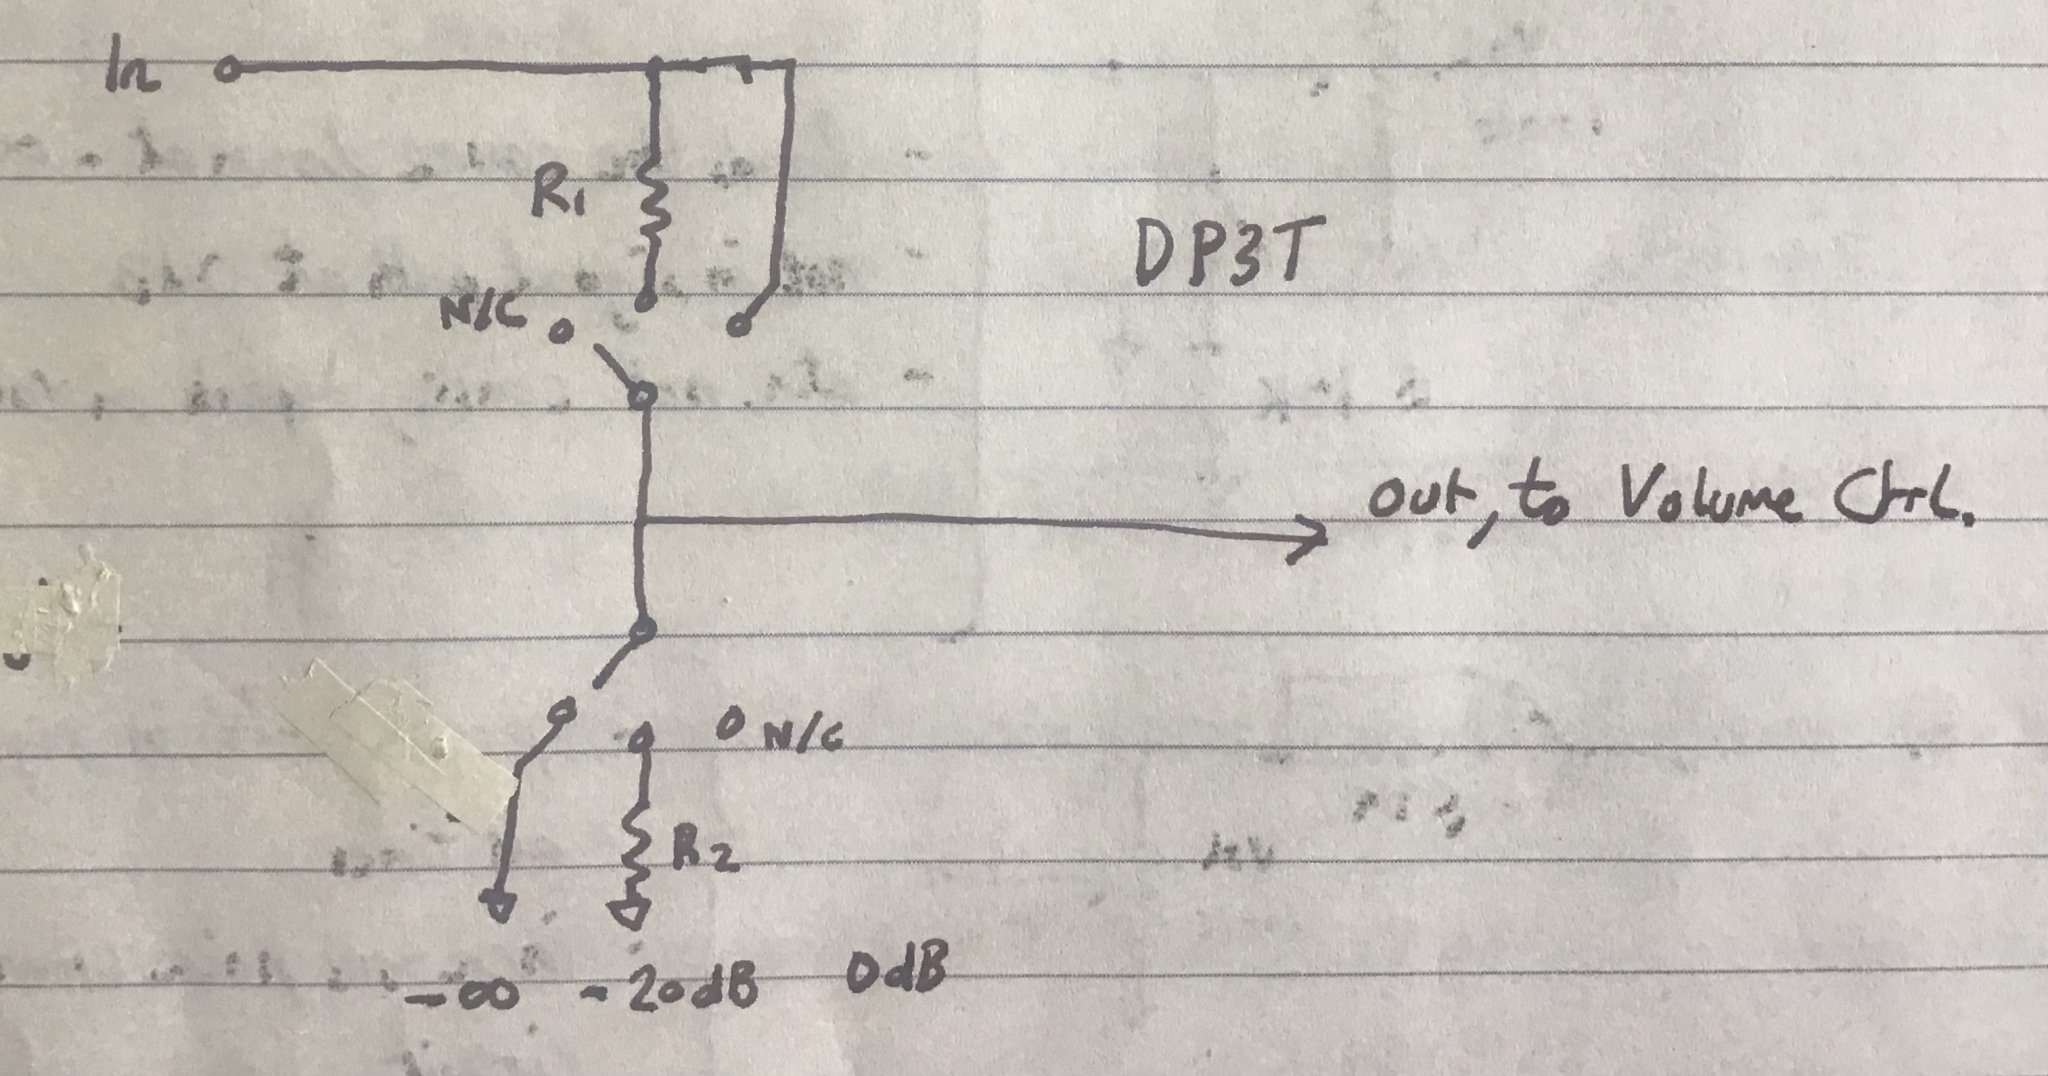 In
R1
DP3T
N/C
out, to Volume Ctrl.
N/C
R2
-∞ -20dB 0dB